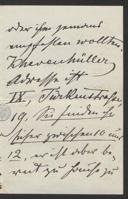 oder ihm jemand
empfehlen wollten.
Khevenhüller
Adresse ist
IX, Türkenstrasse
19. Sie finden ihn
sicher zwischen 10 und
12, er ist aber be-
reit zu Ihnen zu